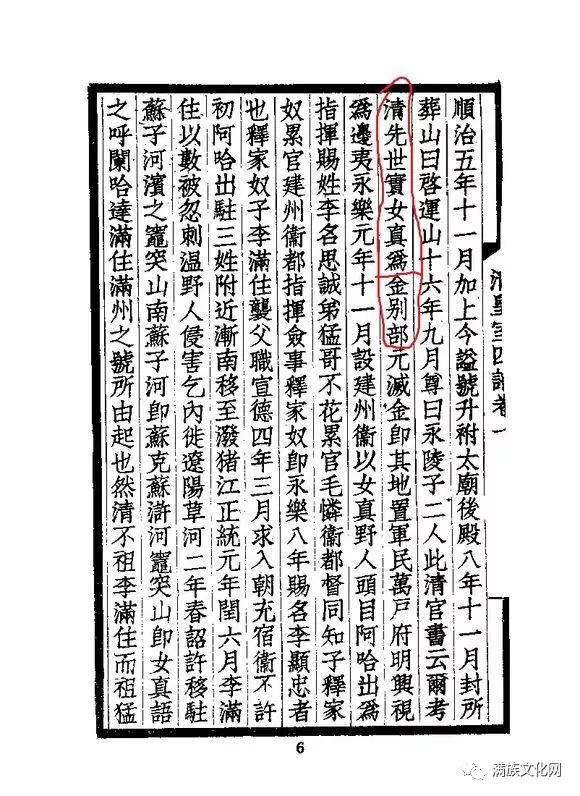 順治五年十一月加上今謚號升祔太廟後殿八年十一月封所
葬山曰啓運山十六年九月尊曰永陵子二人此清官書云爾考
清先世實女真爲金别部元滅金即其地置軍民萬戸府明興視
爲邊夷永樂元年十一月設建州衞以女真野人頭目阿哈出爲
指揮賜姓李名思誠弟猛哥不花累官毛憐衞都督同知子釋家
奴累官建州衞都指揮僉事釋家奴即永樂八年賜名李顯忠者
也釋家奴子李滿住襲父職宣德四年三月求入朝充宿衞不許
初阿哈出駐三姓附近漸南移至潑猪江正統元年閏六月李滿
住以數被忽剌温野人侵害乞內徙遼陽草河二年春詔許移駐
蘇子河濱之竈突山南蘇子河即蘇克蘇滸河竈突山即女真語
之呼蘭哈達滿住滿州之號所由起也然清不祖李滿住而祖猛
清皇室四譜卷一
6
满族文化网